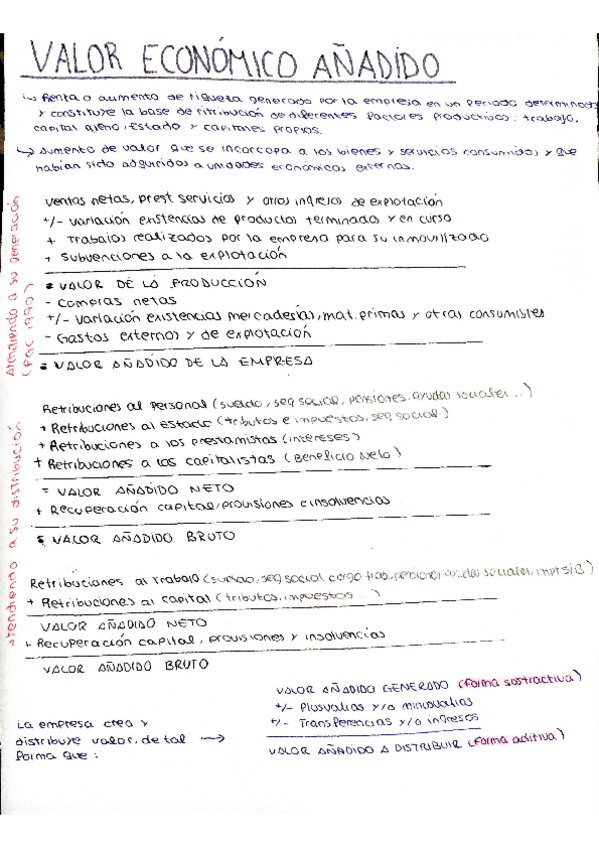 VALOR ECONÓMICO AÑADIDO
↳ Renta o aumento de riqueza generado por la empresa en un periodo determinado
y constituye la base de ritribución de diferentes factores productivos: trabajo,
capital ajeno, Estado y capitales propios.
↳ Aumento de valor que se incorpora a los bienes y servicios consumidos y que
habían sido adquiridos a unidades económicas externas.
Atendiendo a su generación
(PGC 1990)
Ventas netas, prest servicios y otros ingresos de explotación
+/- Variación existencias de productos terminado y en curso
+ Trabajos realizados por la empresa para su inmovilizado
+ Subvenciones a la explotación
= VALOR DE LA PRODUCCIÓN
- Compras netas
+/- Variación existencias mercaderías, mat. primas y otras consumibles
- Gastos externos y de explotación
= VALOR AÑADIDO DE LA EMPRESA
Atendiendo a su distribución
Retribuciones al Personal (sueldo, seg social, pensiones, ayudas sociales...)
+ Retribuciones al Estado (tributos e impuestos, seg social)
+ Retribuciones a los prestamistas (intereses)
+ Retribuciones a los capitalistas (Beneficio Neto)
= VALOR AÑADIDO NETO
+ Recuperación capital, provisiones e insolvencias
= VALOR AÑADIDO BRUTO
Retribuciones al trabajo (sueldo, seg social cargo trab, pensiones, ayudas sociales,
+ Retribuciones al capital (tributos, impuestos...)
VALOR AÑADIDO NETO
+ Recuperación capital, provisiones y insolvencias
VALOR AÑADIDO BRUTO
La empresa crea y
distribuye valor, de tal →
forma que:
VALOR AÑADIDO GENERADO (forma sostractiva)
+/- Plusvalías y/o minusvalías
+/- Transferencias y/o ingresos
VALOR AÑADIDO A DISTRIBUIR (forma aditiva)